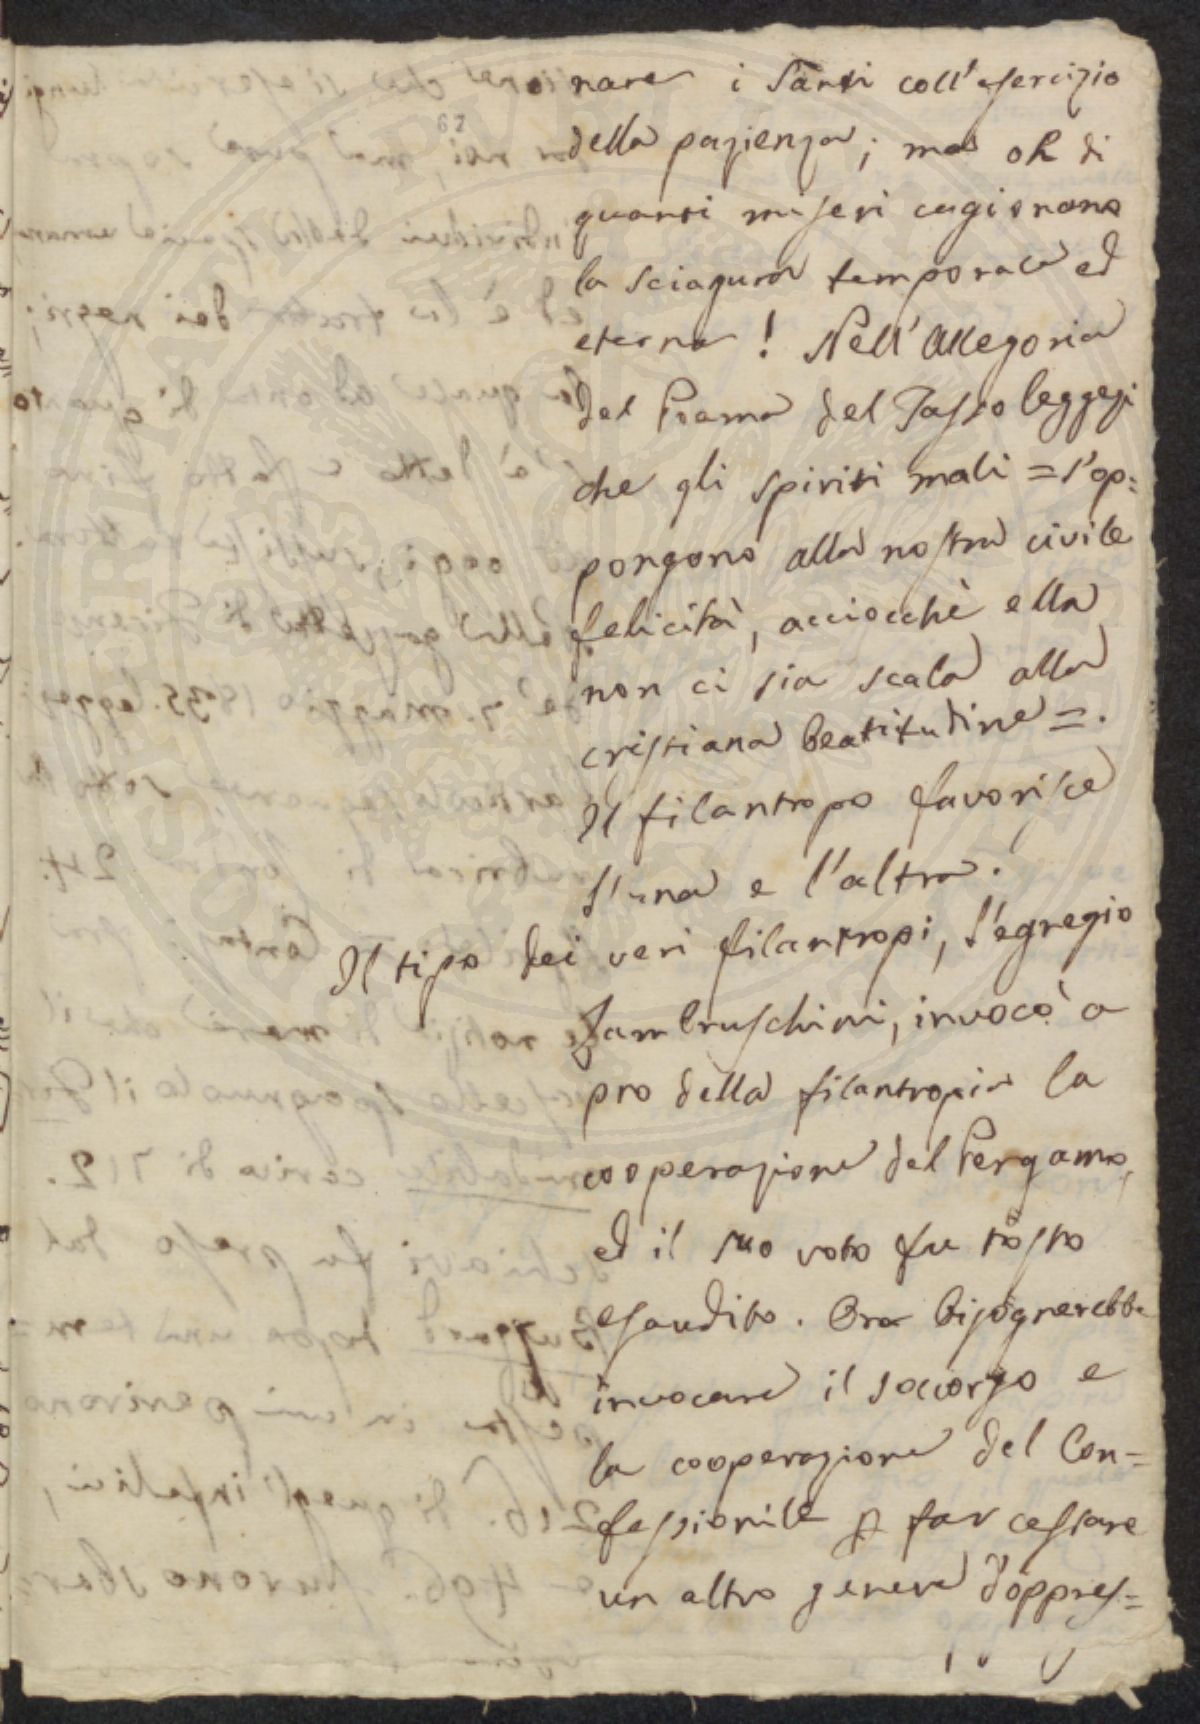 nare i Santi coll'esercizio
della pazienza; ma oh di
quanti miseri cagionano
la sciagura temporale ed
eterna! Nell'Allegoria
del Poema del Tasso leggesi
che gli spiriti mali = s'op=
pongono alla nostra civile
felicità, acciocchè ella
non ci sia scala alla
cristiana beatitudine =.
Il filantropo favorisce
l'una e l'altra.
Il tipo dei veri filantropi, l'egregio
Lambruschini, invocò a
pro della filantropia la
cooperazione del Pergamo,
ed il suo voto fu tosto
esaudito. Ora bisognerebbe
invocare il soccorso e
la cooperazione del Con=
fessionile p far cessare
un altro genere d'oppres=